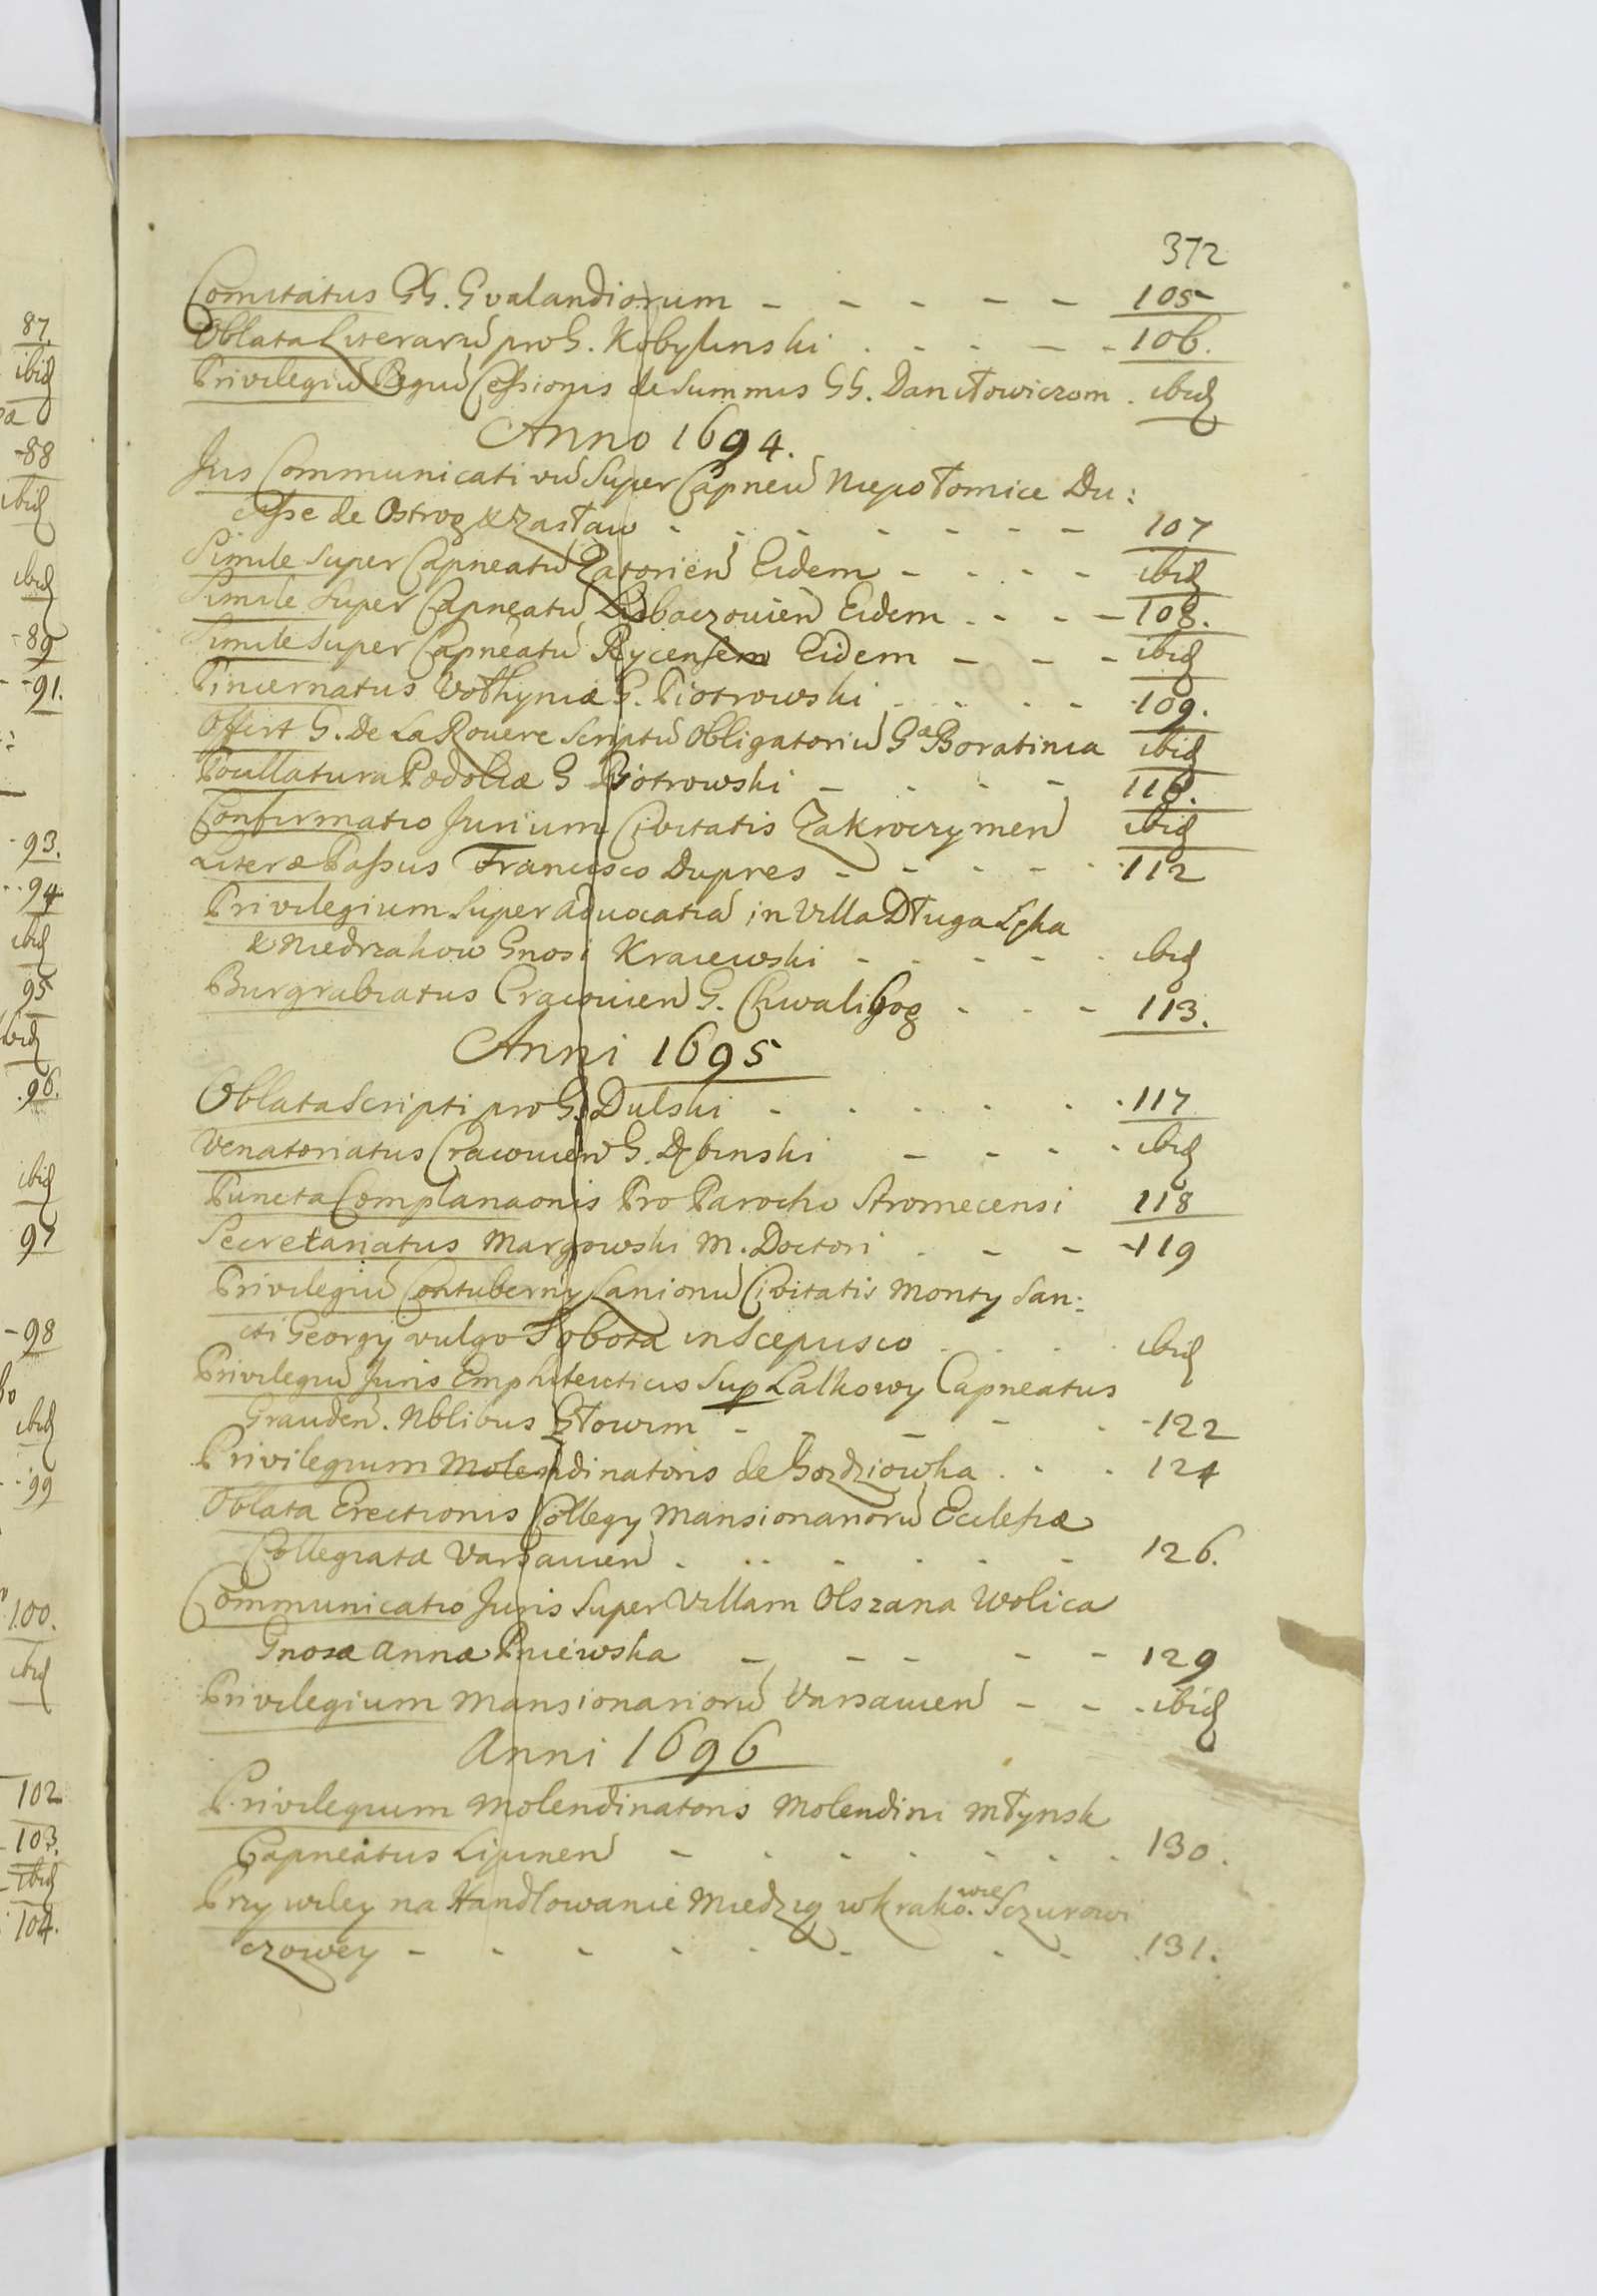 372
Comitatus GG. Gvalandiorum - - - - - 105
Oblata Literarũ pro G. Kobylinski . - - - - 106.
Privilegiũ Regiũ Cessionis de Summis GG. Daniłowiczom . ibid
Anno 1694.
Jus Communicativũ Super Capneũ Niepołomice Du:
cisse de Ostrog & Zasław - - - - - - - 107
Simile Super Capneatũ Zatorien Eidem - - - - ibid
Simile Super Capneatũ Lubaczovien Eidem . - - - 108.
Simile Super Capneatũ Rycensem Eidem - - - ibid
Pincernatus Vołhyniæ G. Piotrowski . - - - 109.
Offert G. De La Rovere Scriptũ Obligatoriũ Gæ Boratinia ibid
Pocillatura Podoliæ G Piotrowski - - - - 110.
Confirmatio Jurium Civitatis Zakroczymen ibid
Literæ Passus Francisco Dupres - - - - - 112
Privilegium Super Advocatiã in Villa Długa Łęka
& Niedrzakow Gnosi Kraiewski - - - - - ibid
Burgrabiatus Cracovien G. Chwalibog - - - 113.
Anni 1695
Oblata Scripti pro G. Dulski - - - - - - 117
Venatoriatus Cracovien G. Dębinski - - - - ibid
Puncta Complanaonis Pro Parocho Stromecensi 118
Secretariatus Margowski M. Doctori . - - - 119
Privilegiũ Contuberny Lanionũ Civitatis Monty San:
cti Georgy vulgo Sobota in Scepusio . . . . ibid
Privilegiũ Juris Emphiteuticis Sup Lalkowy Capneatus
Grauden. Nblibus Głowim - - - - - - 122
Privilegium Molendinatoris de Gozdziowka . - - 124
Oblata Erectionis Collegy Mansionariorũ Ecclesiæ
Collegiatæ Varsavien . - - - - - - 126.
Communicatio Juris Super Villam Olszana Wolica
Gnosæ Annæ Pniewska - - - - - 129
Privilegium Mansionariorũ Varsavien - - - ibid
Anni 1696
Privilegium Molendinatoris Molendini Młynsk
Capneatus Lipinen - - - - - - - 130.
Przywiley na Handlowanie Miedzią w Krako.wie Sczurowi
czowey - - - - - - - - 131.
87.
ibid
88
ibid
ibid
-89
-91.
-93.
-94
ibid
95
ibid
.96.
ibid
97
-98
ibid
-99
100.
ibid
102
103.
ibid
104.